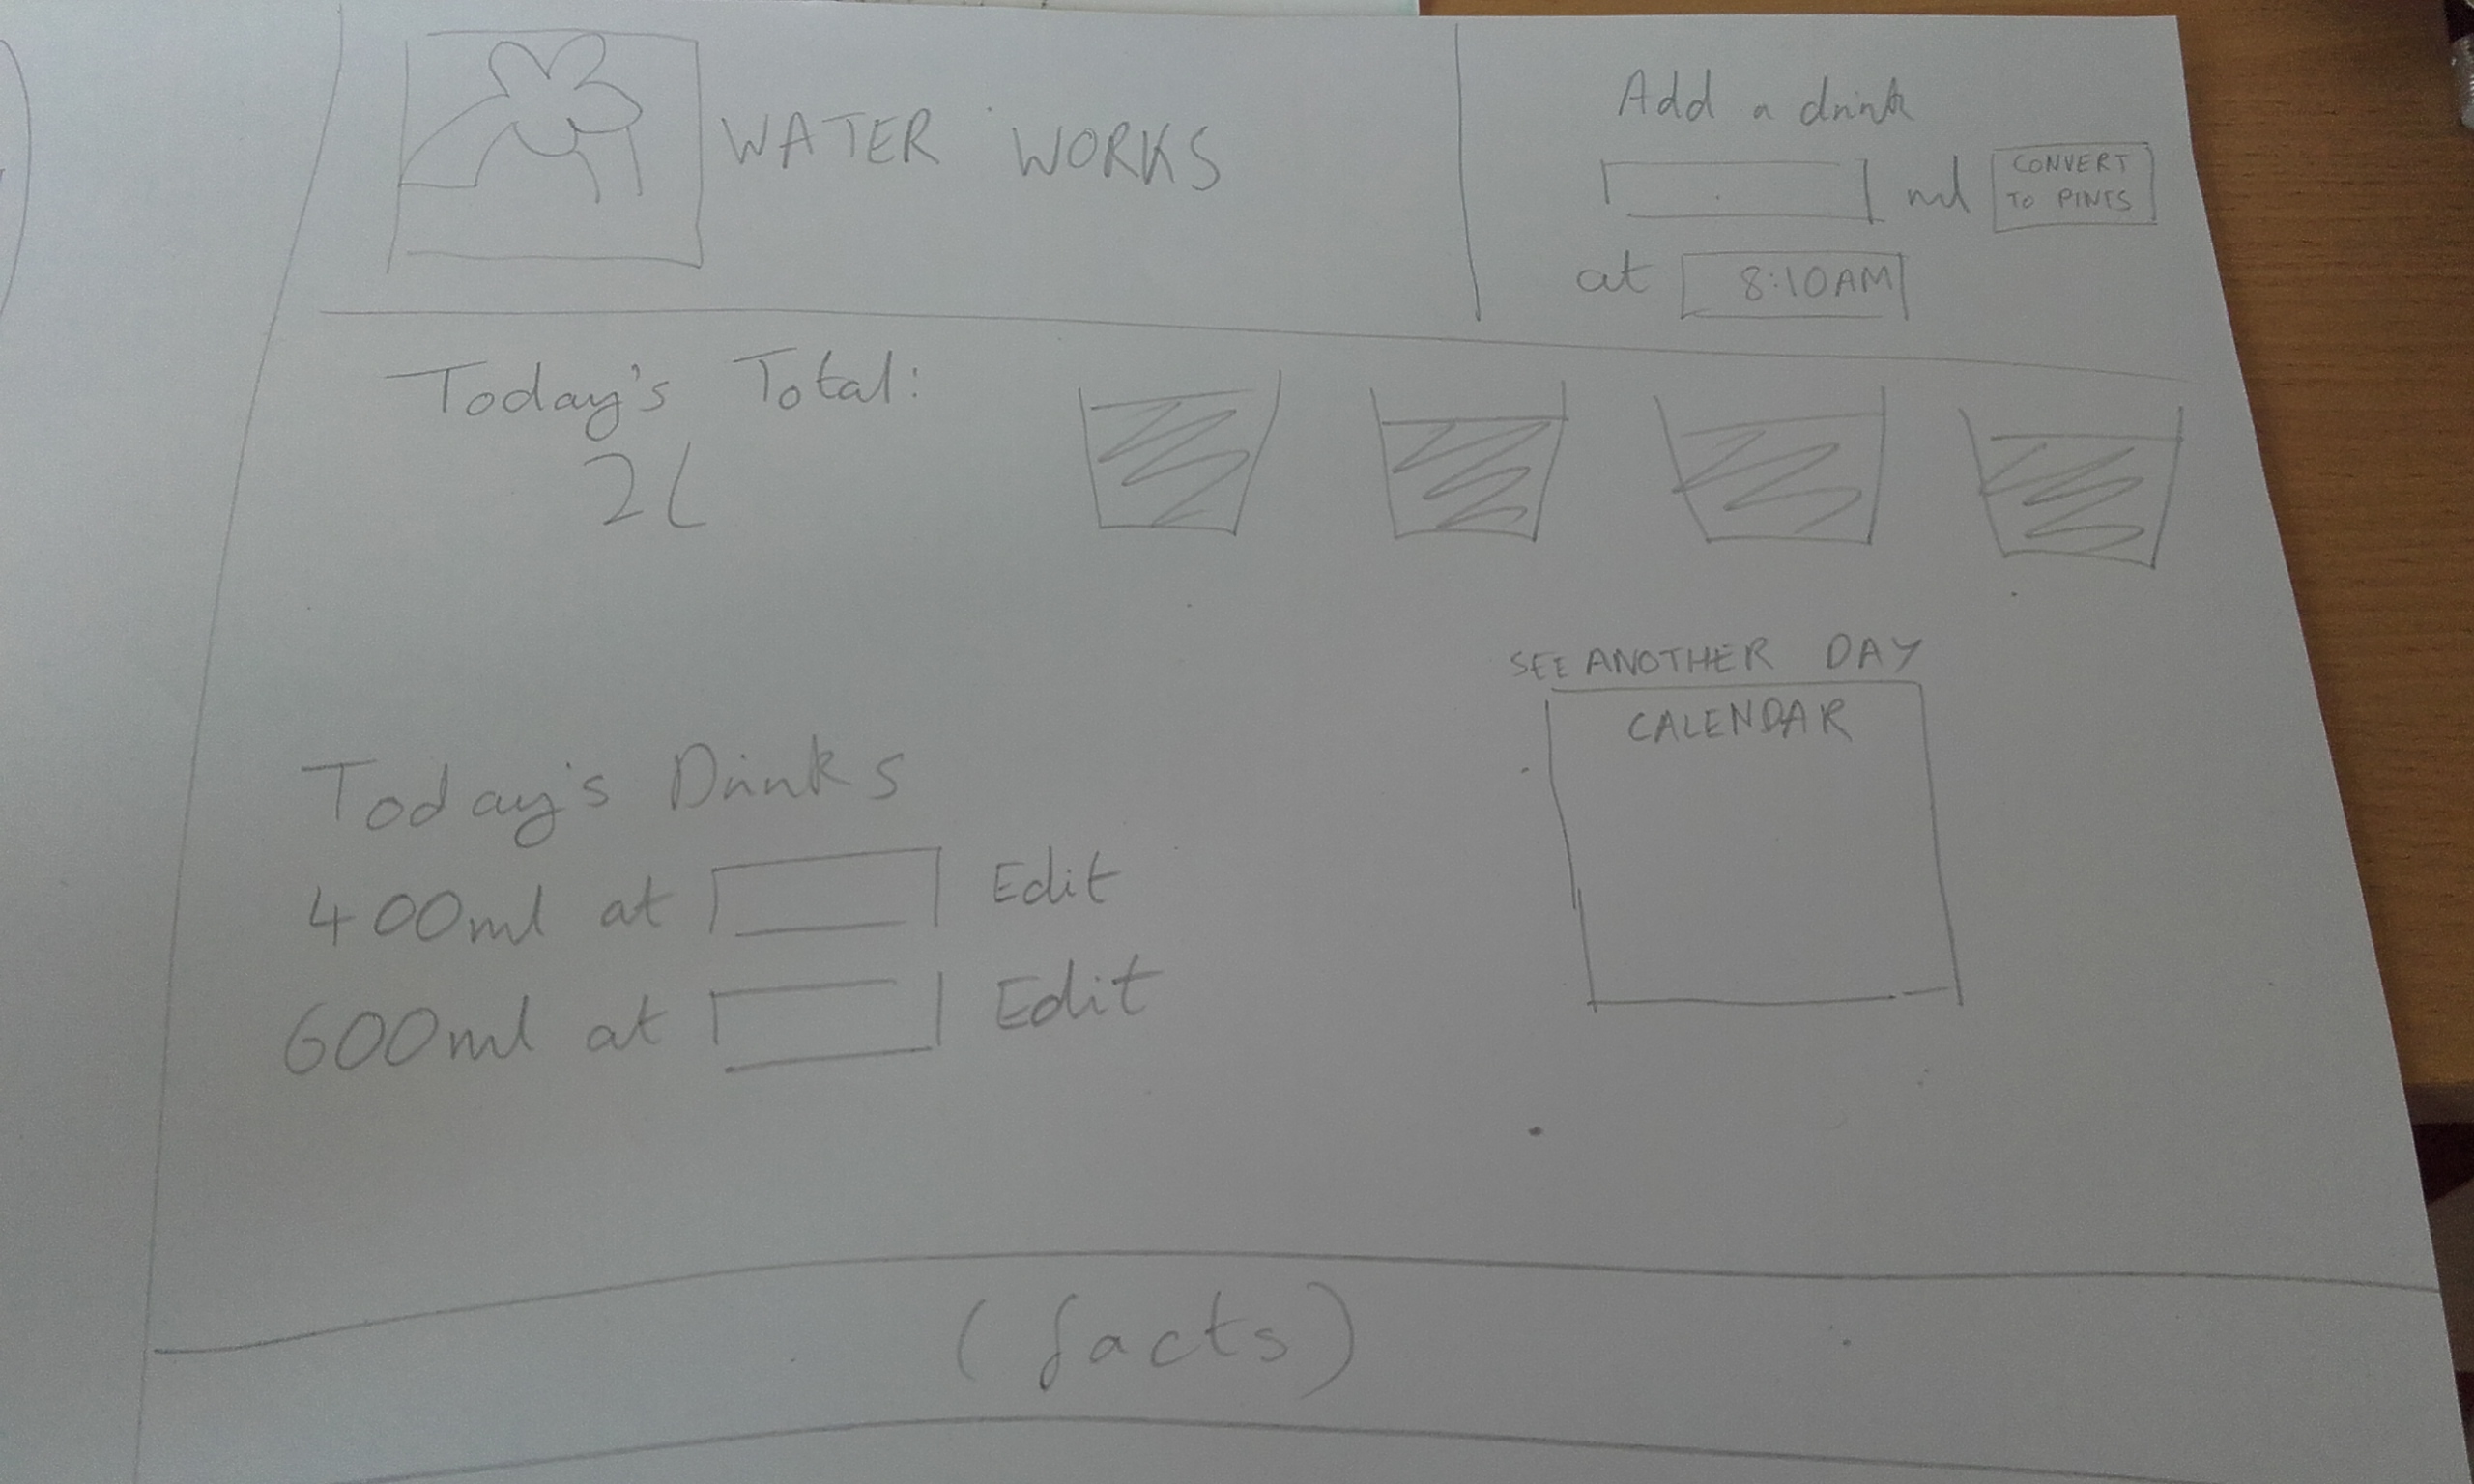 WATER WORKS
Add a drink
ml
CONVERT
TO PINTS
at 8:10AM
Today's Total:
2L
SEE ANOTHER DAY
CALENDAR
Today's Drinks
400ml at Edit
600ml at Edit
(facts)